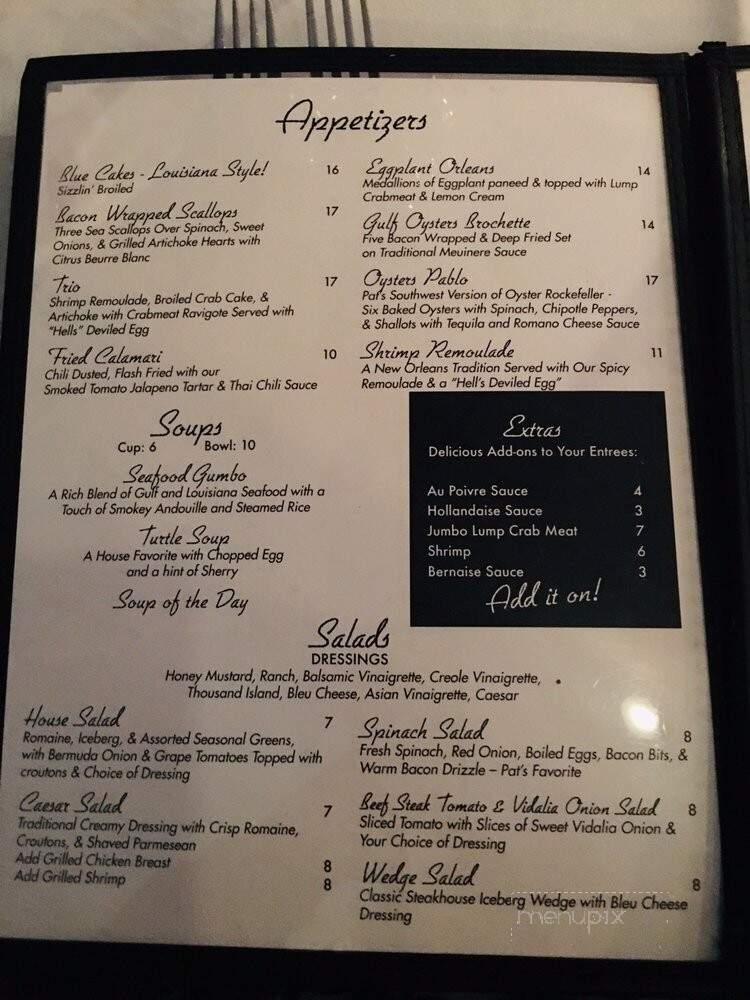 Appetizers
Blue Cakes - Louisiana Style! 16
Sizzlin' Broiled
Bacon Wrapped Scallops 17
Three Sea Scallops Over Spinach, Sweet
Onions, & Grilled Artichoke Hearts with
Citrus Beurre Blanc
Trio 17
Shrimp Remoulade, Broiled Crab Cake, &
Artichoke with Crabmeat Ravigote Served with
"Hells" Deviled Egg
Fried Calamari 10
Chili Dusted, Flash Fried with our
Smoked Tomato Jalapeno Tartar & Thai Chili Sauce
Eggplant Orleans 14
Medallions of Eggplant paneed & topped with Lump
Crabmeat & Lemon Cream
Gulf Oysters Brochette 14
Five Bacon Wrapped & Deep Fried Set
on Traditional Meuinere Sauce
Oysters Pablo 17
Pat's Southwest Version of Oyster Rockefeller -
Six Baked Oysters with Spinach, Chipotle Peppers,
& Shallots with Tequila and Romano Cheese Sauce
Shrimp Remoulade 11
A New Orleans Tradition Served with Our Spicy
Remoulade & a "Hell's Deviled Egg"
Soups
Cup: 6 Bowl: 10
Seafood Gumbo
A Rich Blend of Gulf and Louisiana Seafood with a
Touch of Smokey Andouille and Steamed Rice
Turtle Soup
A House Favorite with Chopped Egg
and a hint of Sherry
Soup of the Day
Extras
Delicious Add-ons to Your Entrees:
Au Poivre Sauce 4
Hollandaise Sauce 3
Jumbo Lump Crab Meat 7
Shrimp 6
Bernaise Sauce 3
Add it on!
Salads
DRESSINGS
Honey Mustard, Ranch, Balsamic Vinaigrette, Creole Vinaigrette,
Thousand Island, Bleu Cheese, Asian Vinaigrette, Caesar
House Salad 7
Romaine, Iceberg, & Assorted Seasonal Greens,
with Bermuda Onion & Grape Tomatoes Topped with
croutons & Choice of Dressing
Caesar Salad 7
Traditional Creamy Dressing with Crisp Romaine,
Croutons, & Shaved Parmesean
Add Grilled Chicken Breast 8
Add Grilled Shrimp 8
Spinach Salad 8
Fresh Spinach, Red Onion, Boiled Eggs, Bacon Bits, &
Warm Bacon Drizzle – Pat's Favorite
Beef Steak Tomato & Vidalia Onion Salad 8
Sliced Tomato with Slices of Sweet Vidalia Onion &
Your Choice of Dressing
Wedge Salad 8
Classic Steakhouse Iceberg Wedge with Bleu Cheese
Dressing
menupix